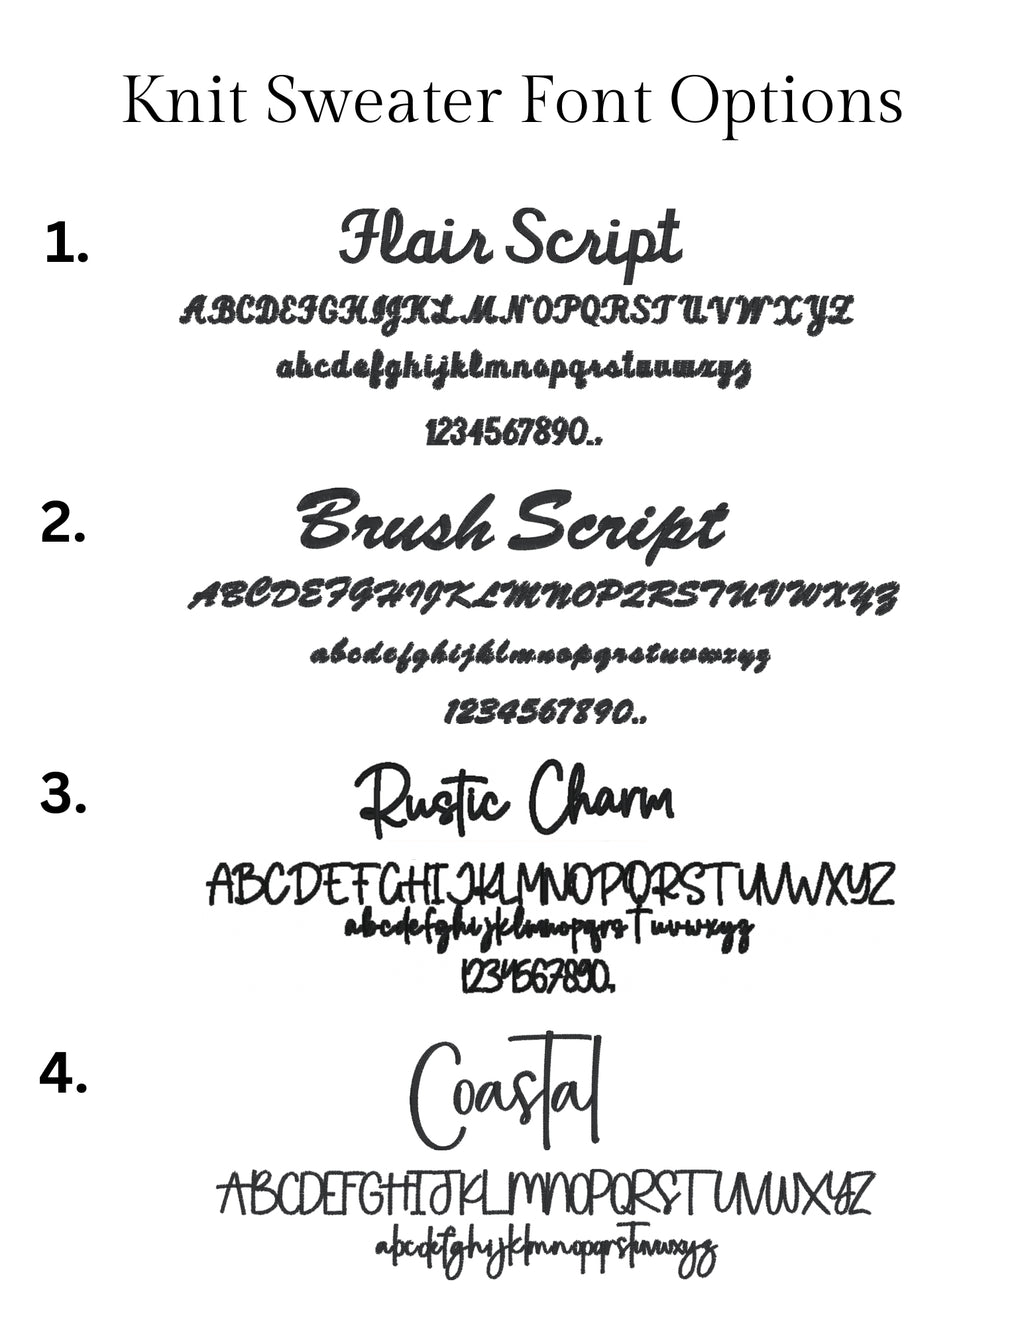 Knit Sweater Font Options
1.
Flair Script
ABCDEFGHIJKLMNOPQRSTUVWXYZ
abcdefghijklmnopqrstuvwxyz
1234567890.,
2.
Brush Script
ABCDEFGHIJKLMNOPQRSTUVWXYZ
abcdefghijklmnopqrstuvwxyz
1234567890.,
3.
Rustic Charm
ABCDEFGHIJKLMNOPQRSTUVWXYZ
abcdefghijklmnopqrstuvwxyz
1234567890.
4.
Coastal
ABCDEFGHIJKLMNOPQRSTUVWXYZ
abcdefghijklmnopqrstuvwxyz